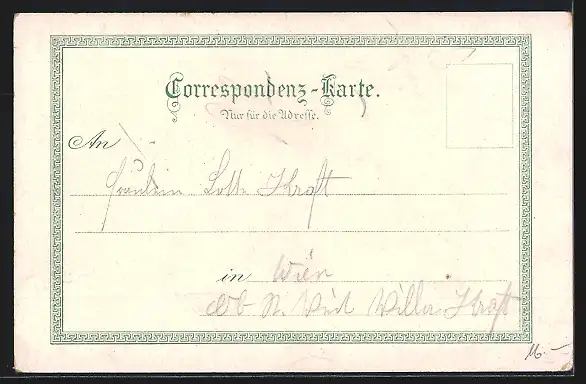 Correspondenz-Karte.
Nur für die Adresse.
An
Fräulein Lotte Kraft
in Wien
Ob St. Veit Villa Kraft
16.-